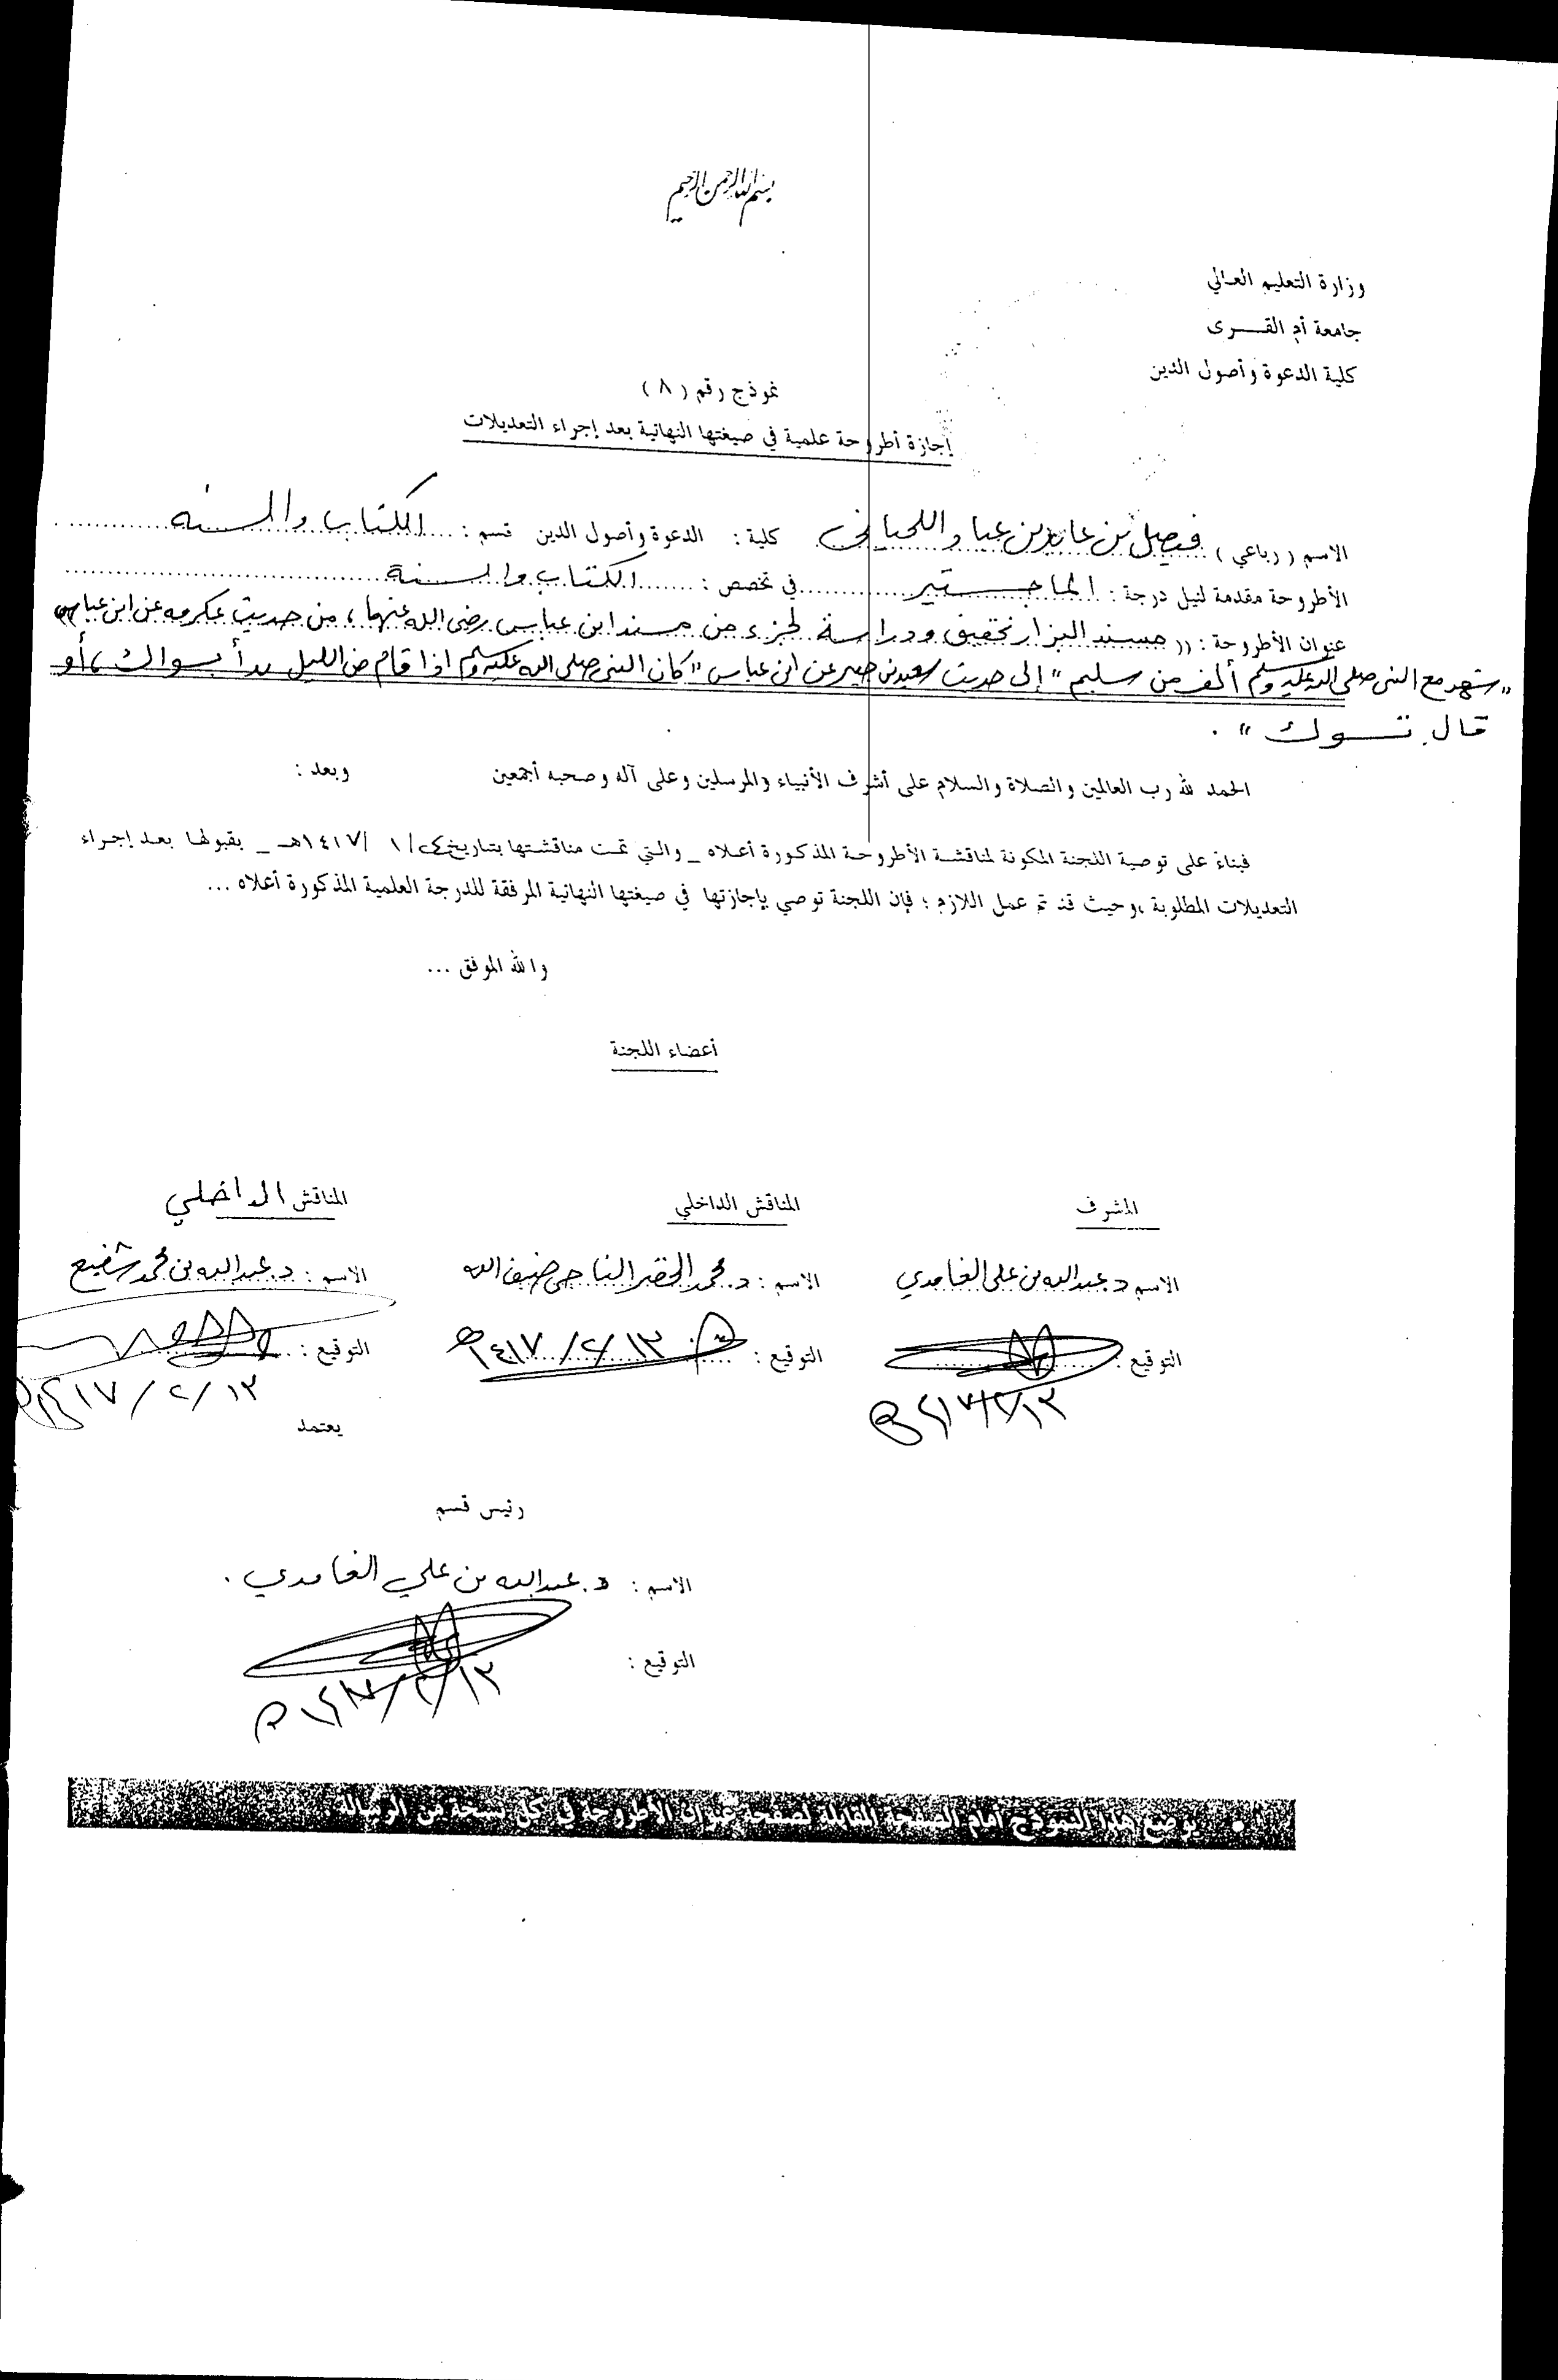 بسم الله الرحمن الرحيم
وزارة التعليم العالي
جامعة أم القــــرى
كلية الدعوة وأصول الدين
نموذج رقم ( ٨ )
إجازة أطروحة علمية في صيغتها النهائية بعد إجراء التعديلات
الاسم ( رباعي ) فيصل بن عابد بن عباد اللحياني كلية : الدعوة وأصول الدين قسم : الكتاب والسنة
الأطروحة مقدمة لنيل درجة : الماجستير في تخصص : الكتاب والسنة
عنوان الأطروحة : (( مسند البزار تحقيق ودراسة لجزء من مسند ابن عباس رضي الله عنهما ، من حديث عكرمه عن ابن عباس
" شهد مع النبي صلى الله عليه وسلم ألف من سليم " إلى حديث سعيد بن جبير عن ابن عباس " كان النبي صلى الله عليه وسلم اذا قام من الليل بدأ بسواك ، أو
قال تسوك " .
الحمد لله رب العالمين والصلاة والسلام على أشرف الأنبياء والمرسلين وعلى آله وصحبه أجمعين وبعد :
فبناءً على توصية اللجنة المكونة لمناقشة الأطروحة المذكورة أعلاه _ والتي تمت مناقشتها بتاريخ / ١ / ١٤١٧هـ _ بقبولها بعد إجراء
التعديلات المطلوبة ،وحيث قد تم عمل اللازم ؛ فإن اللجنة توصي بإجازتها في صيغتها النهائية المرفقة للدرجة العلمية المذكورة أعلاه ...
والله الموفق ...
أعضاء اللجنة
المشرف المناقش الداخلي المناقش الداخلي
الاسم د. عبدالله بن علي الغامدي الاسم : د. محمد الخضر الناجي ضيف الله الاسم : د. عبدالله بن محمد شفيع
التوقيع : التوقيع : ١٤١٧/٢/١٣هـ التوقيع :
١٤١٧/٢/١٣هـ ١٤١٧/٢/١٣هـ
يعتمد
رئيس قسم
الاسم : د. عبدالله بن علي الغامدي .
التوقيع :
١٤١٧/٢/١٣هـ
• يوضع هذا النموذج أمام الصفحة المقابلة لصفحة عنوان الأطروحة في كل نسخة من الرسالة